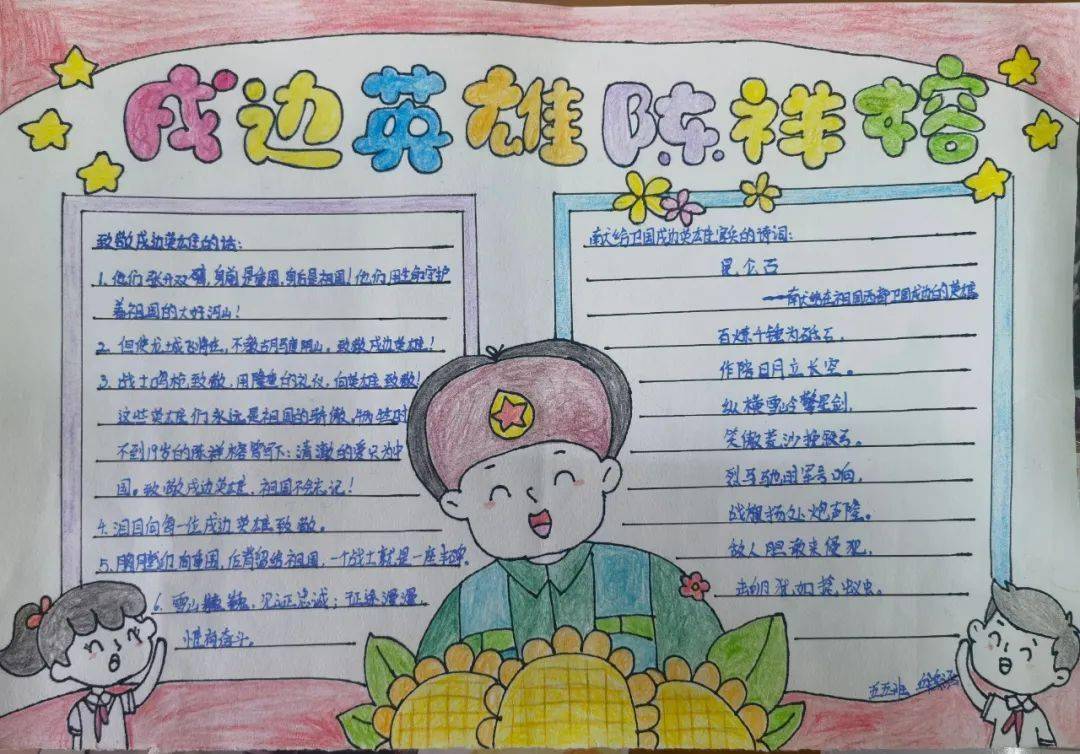 戍边英雄陈祥榕
致敬戍边英雄的话:
1. 他们张开双臂,身前是重围,身后是祖国!他们用生命守护
着祖国的大好河山!
2. 但使龙城飞将在,不教胡马度阴山。致敬戍边英雄!
3. 战士鸣枪致敬,用隆重的礼仪,向英雄致敬!
这些英雄们永远是祖国的骄傲,牺牲时
不到19岁的陈祥榕曾写下:清澈的爱只为中
国。致敬戍边英雄,祖国不会忘记!
4. 泪目向每一位戍边英雄致敬。
5. 胸膛向重围,后背留给祖国,一个战士就是一座丰碑。
6. 雪山巍巍,见证忠诚;征途漫漫,
惟有奋斗。
献给卫国戍边英雄官兵的诗词:
昆仑石
——献给在祖国西部卫国戍边的英雄
百炼千锤为砥石,
作陪日月立长空。
纵横雪岭擎星剑,
笑傲荒沙挽弓。
烈马驰军号响,
战旗扬处炮声隆。
敌人胆敢来侵犯,
出哨犹如捉虫。
五五班